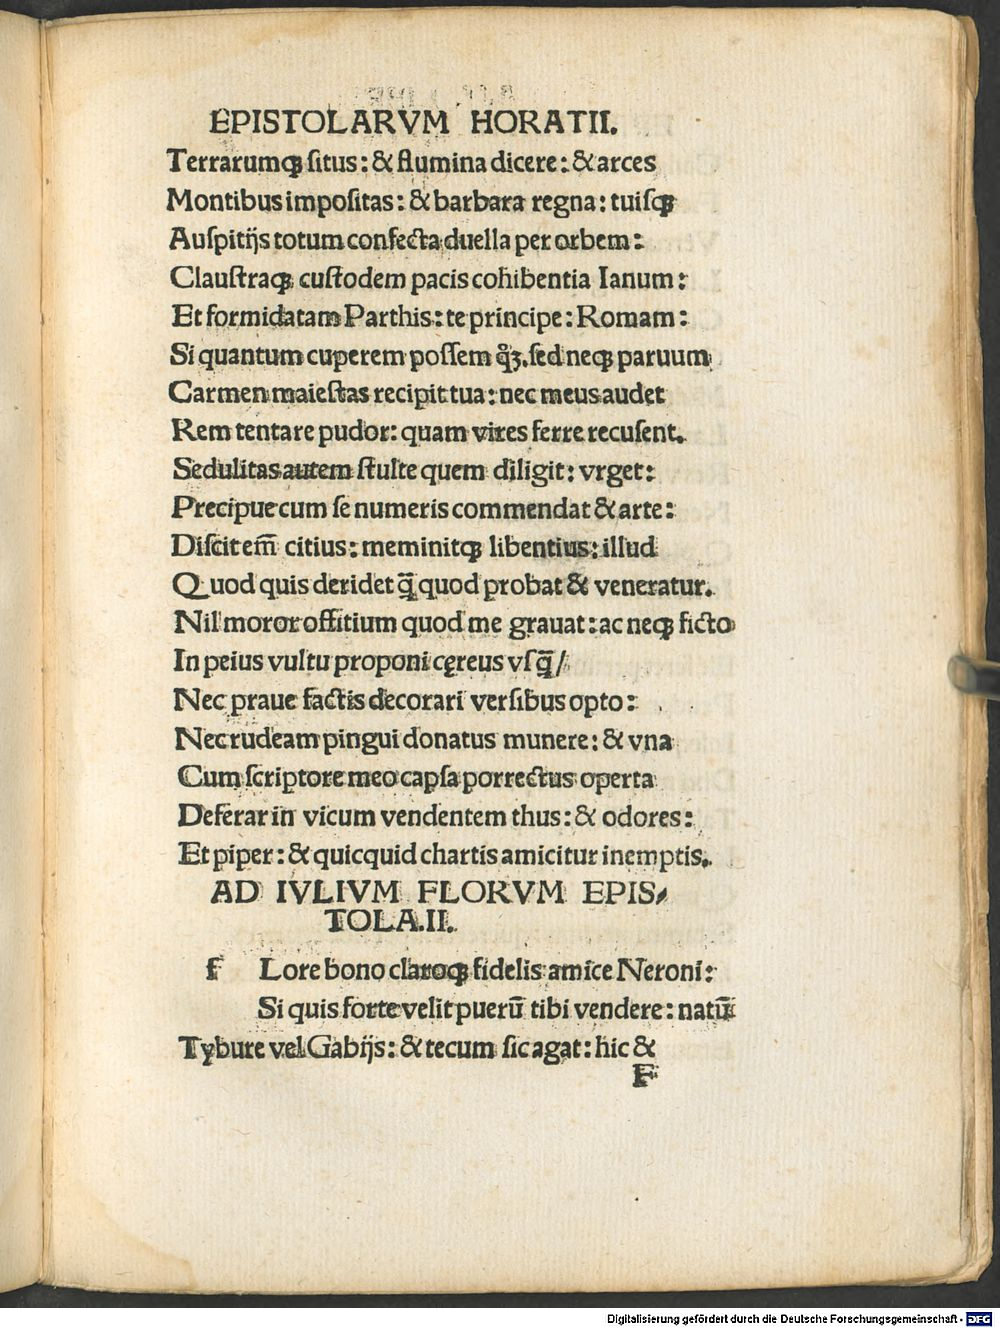 EPISTOLARVM HORATII.
Terrarumqꝫ ſitus: & flumina dicere: & arces
Montibus impoſitas: & barbara regna: tuiſqꝫ
Auſpitijs totum confecta duella per orbem:
Clauſtraqꝫ cuſtodem pacis cohibentia Ianum:
Et formidatam Parthis: te principe: Romam:
Si quantum cuperem poſſem qͣꝫ. ſed neqꝫ paruum
Carmen maieſtas recipit tua: nec meus audet
Rem tentare pudor: quam vires ferre recuſent.
Sedulitas autem ſtulte quem diligit: vrget:
Precipue cum ſe numeris commendat & arte:
Diſcit em̄ citius: meminitqꝫ libentius: illud
Quod quis deridet q̄ quod probat & veneratur.
Nil moror offitium quod me grauat: ac neqꝫ ficto
In peius vultu proponi cęreus vſq̄ /
Nec praue factis decorari verſibus opto:
Nec rudeam pingui donatus munere: & vna
Cum ſcriptore meo capſa porrectus operta
Deferar in vicum vendentem thus: & odores:
Et piper: & quicquid chartis amicitur inemptis.
AD IVLIVM FLORVM EPIS⸗
TOLA.II.
f Lore bono claroqꝫ fidelis amice Neroni:
Si quis forte velit puerū tibi vendere: natū
Tybure vel Gabijs: & tecum ſic agat: hic &
F
Digitalisierung gefördert durch die Deutsche Forschungsgemeinschaft - DFG